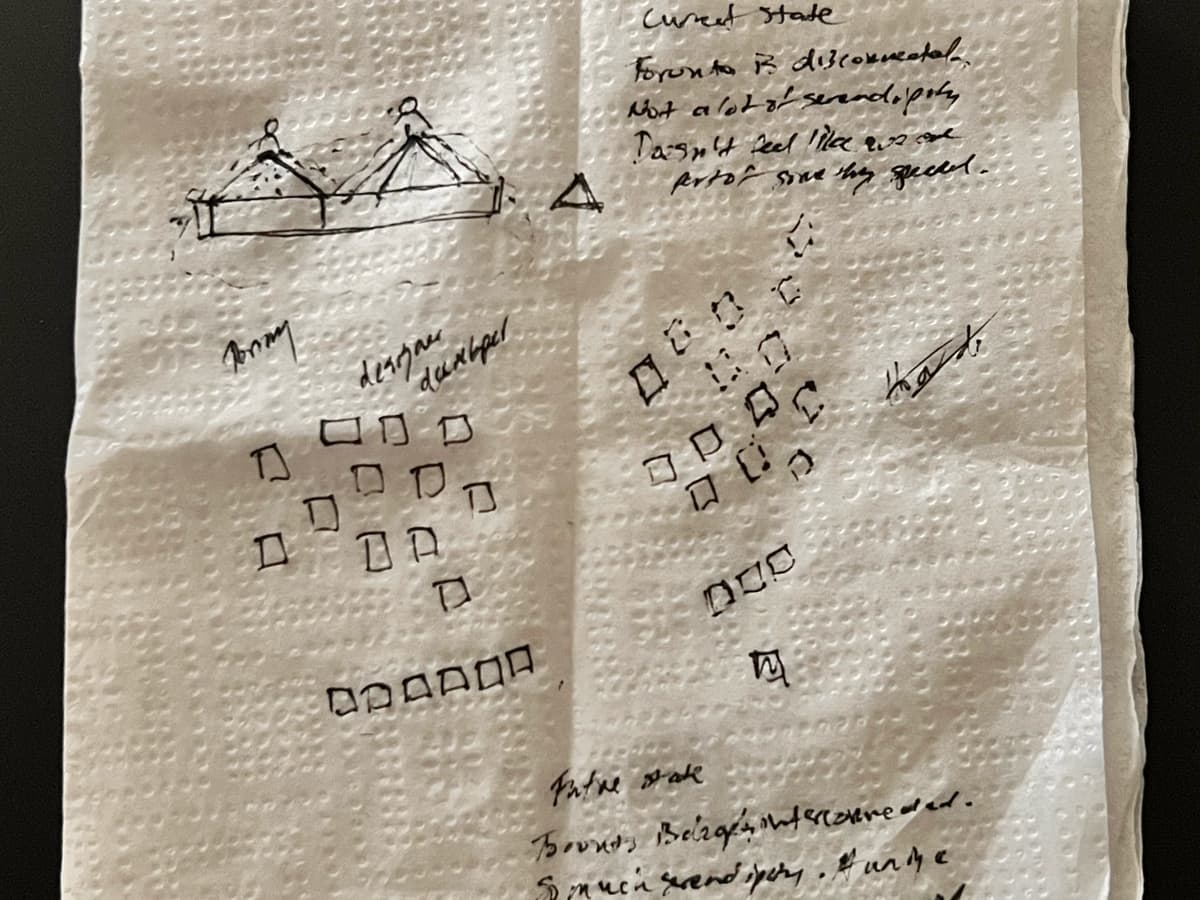 Current state
Toronto is disconnected.
Not a lot of serendipity
Doesn't feel like we are
part of something special.
Tommy
designer
developer
Hard.
Future state
Toronto is interconnected.
So much serendipity.